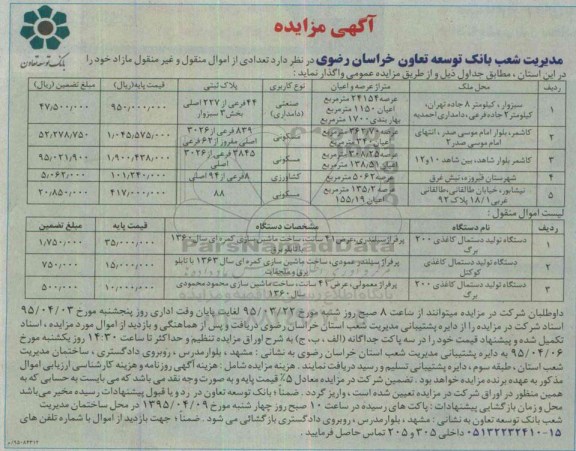 آگهی مزایده
بانک توسعه تعاون
مدیریت شعب بانک توسعه تعاون خراسان رضوی در نظر دارد تعدادی از اموال منقول و غیر منقول مازاد خود را
در این استان ، مطابق جداول ذیل و از طریق مزایده عمومی واگذار نماید :
ردیف محل ملک متراژ عرصه و اعیان نوع کاربری پلاک ثبتی قیمت پایه(ریال) مبلغ تضمین (ریال)
۱ سبزوار ، کیلومتر ۸ جاده تهران، کیلومتر ۲ جاده فرعی، دامداری احمدیه عرصه ۲۴۱۵۴ مترمربع اعیان ۱۱۵۰ مترمربع بهاربندی ۱۷۰۰ مترمربع صنعتی (دامداری) ۴۴ فرعی از ۲۲۷ اصلی بخش ۳ سبزوار ۹۵۰,۰۰۰,۰۰۰ ۴۷,۵۰۰,۰۰۰
۲ کاشمر، بلوار امام موسی صدر ، انتهای امام موسی صدر ۲ عرصه ۳۶۲/۷۰ مترمربع اعیان ۲۴۰ مترمربع مسکونی ۸۳۹ فرعی از ۳۰۲۶ اصلی مفروز از ۶۲ فرعی ۱,۰۴۵,۵۷۵,۰۰۰ ۵۲,۲۷۸,۷۵۰
۳ کاشمر بلوار شاهد، بین شاهد ۱۰ و ۱۲ عرصه ۳۰۸/۲۵ مترمربع اعیان ۱۳۸/۵۱ مترمربع مسکونی ۳۸۴۵ فرعی از ۳۰۲۶ اصلی ۱,۹۰۰,۴۳۸,۰۰۰ ۹۵,۰۲۱,۹۰۰
۴ شهرستان فیروزه، نیش غرق عرصه ۵۰۶۲ مترمربع کشاورزی ۸ فرعی از ۹۴ اصلی ۱۰۱,۲۴۰,۰۰۰ ۵,۰۶۲,۰۰۰
۵ نیشابور، خیابان طالقانی، طالقانی غربی ۱۸/۱ پلاک ۹۲ عرصه ۱۳۵/۲ مترمربع اعیان ۱۵۵/۱۹ مسکونی ۸۸ ۴۱۷,۰۰۰,۰۰۰ ۲۰,۸۵۰,۰۰۰
لیست اموال منقول :
ردیف نام دستگاه مشخصات دستگاه قیمت پایه مبلغ تضمین
۱ دستگاه تولید دستمال کاغذی ۲۰۰ برگ سال ۱۳۶۰ ۳۵,۰۰۰,۰۰۰ ۱,۷۵۰,۰۰۰
۲ دستگاه تولید دستمال کاغذی کوکتل پرفراژ سیلندر عمودی، ساخت ماشین سازی کمره ای سال ۱۳۶۳ با تابلو برق و متعلقات ۱۵,۰۰۰,۰۰۰ ۷۵۰,۰۰۰
۳ دستگاه تولید دستمال کاغذی ۲۰۰ برگ پرفراژ معمولی، عرض ۴۱ سانت، ساخت ماشین سازی محمود محمودی سال ۱۳۶۰ ۱۰,۰۰۰,۰۰۰ ۵۰۰,۰۰۰
داوطلبان شرکت در مزایده میتوانند از ساعت ۸ صبح روز شنبه مورخ ۹۵/۰۳/۲۲ لغایت پایان وقت اداری روز پنجشنبه مورخ ۹۵/۰۴/۰۳
اسناد شرکت در مزایده را از دایره پشتیبانی مدیریت شعب استان خراسان رضوی دریافت و پس از هماهنگی و بازدید از اموال مورد مزایده ، اسناد
تکمیل شده و پیشنهاد قیمت خود را در سه پاکت جداگانه (الف ، ب ، ج) به شرح اوراق مزایده تنظیم و حداکثر تا ساعت ۱۴:۳۰ روز یکشنبه مورخ
۹۵/۰۴/۰۶ به دایره پشتیبانی مدیریت شعب استان خراسان رضوی به نشانی : مشهد ، بلوار مدرس ، روبروی دادگستری ، ساختمان مدیریت
شعب استان ، طبقه سوم ، دایره پشتیبانی تسلیم و رسید دریافت نمایند . هزینه مزایده شامل : هزینه آگهی روزنامه و هزینه کارشناسی ارزیابی اموال
مذکور به عهده برنده مزایده خواهد بود . تضمین شرکت در مزایده معادل ۵٪ قیمت پایه و به صورت وجه نقد می باشد که می بایست به حسابی که به
همین منظور در اوراق شرکت در مزایده تعیین شده است ، واریز گردد . ضمناً ؛ بانک توسعه تعاون در رد و یا قبول پیشنهادات رسیده مخیر می باشد
محل و زمان بازگشایی پیشنهادات : پاکت های رسیده در ساعت ۱۰ صبح روز چهار شنبه مورخ ۱۳۹۵/۰۴/۰۹ در محل ساختمان مدیریت
شعب بانک توسعه تعاون به نشانی : مشهد ، بلوار مدرس ، روبروی دادگستری بازگشائی می شود . ضمناً ؛ جهت بازدید از اموال با شماره تلفن های
۱۵-۰۵۱۳۲۲۳۲۴۱۰ داخلی ۳۰۵ و ۲۰۵ تماس حاصل فرمایید .